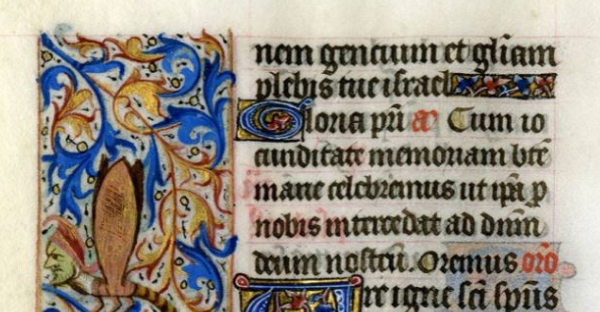 nem gencium et gl̃iam
plebis tue israel
Gloria pr̃i a᷒ Cum io
cunditate memoriam bt̃e
marie celebremus ut ip̃a p
nobis intercedat ad dnm̃
deum nostrũ. Oremus. or̃o
Ure igne sc̃i sp̃us